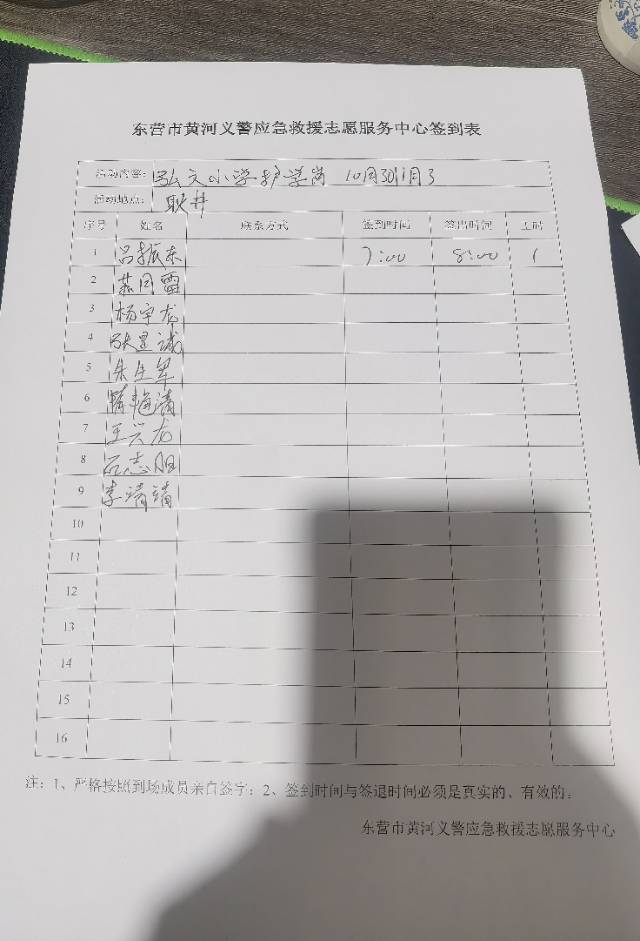 东营市黄河义警应急救援志愿服务中心签到表
活动内容: 弘文小学护学岗 10月30 11月3
活动地点: 耿井
序号 姓名 联系方式 签到时间 签出时间 工时
1 吕振东 7:00 8:00 1
2
3 杨宇龙
4
5 朱生军
6
7 王兴龙
8 石志
9 李清
10
11
12
13
14
15
16
注：1、严格按照到场成员亲自签字；2、签到时间与签退时间必须是真实的、有效的。
东营市黄河义警应急救援志愿服务中心